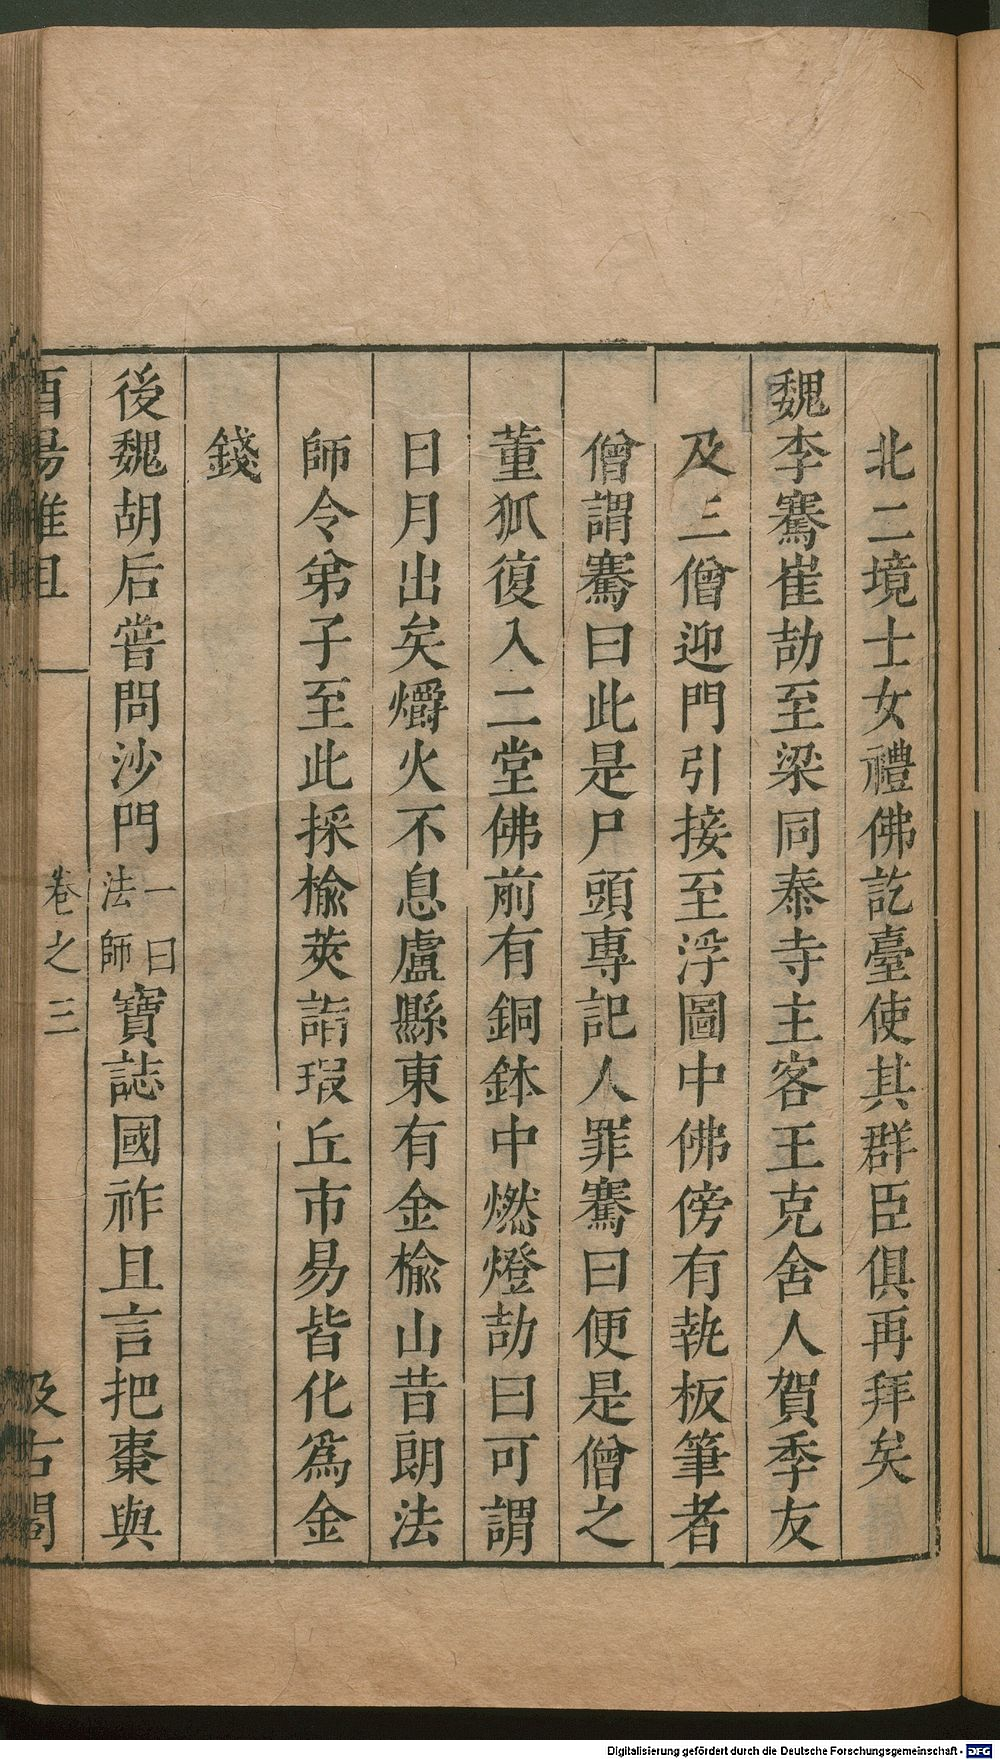 北二境士女禮佛訖臺使其群臣俱再拜矣
魏李騫崔劼至梁同泰寺主客王克舍人賀季友
及三僧迎門引接至浮圖中佛傍有執板筆者
僧謂騫曰此是尸頭專記人罪騫曰便是僧之
董狐復入二堂佛前有銅鉢中燃燈劼曰可謂
日月出矣爝火不息盧縣東有金榆山昔朗法
師令弟子至此採榆莢詣瑕丘市易皆化爲金
錢
後魏胡后嘗問沙門一曰法師寶誌國祚且言把棗與
酉陽雜俎 卷之三 汲古閣
Digitalisierung gefördert durch die Deutsche Forschungsgemeinschaft - DFG